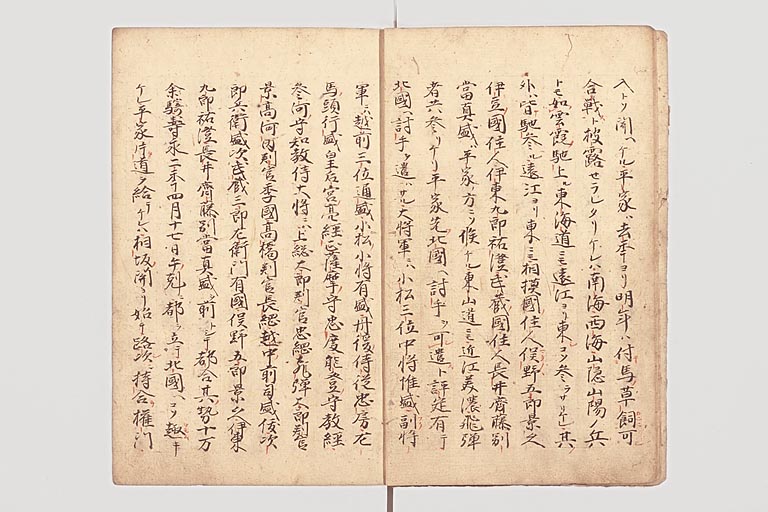 入トソ聞ヘケル平家ハ去年ヨリ明年ハ付馬草飼可
合戦ト披露セラレタリケレハ南海西海山隠山陽ノ兵
トモ如雲霞馳上ル東海道ニモ遠江ヨリ東コソ参ラサリケレ其
外ハ皆馳参ル遠江ヨリ東ニモ相摸國住人俣野五郎景久
伊豆國住人伊東九郎祐澄武蔵國住人長井齊藤別
當真盛ハ平家ノ方ニソ候ケル東山道ニモ近江美濃飛弾
者共参リケリ平家先北國ヘ討手ヲ可遣ト評定有テ
北國ヘ討手ヲ遣ハサル大将軍ニハ小松三位中将惟盛副将
軍ニハ越前三位通盛小松小将有盛丹後侍従忠房左
馬頭行盛皇后宮亮經正薩摩守忠度能登守教經
参河守知教侍大将ニハ上総大郎判官忠綱飛弾大郎判官
景高河内判官季國高橋判官長綱越中前司盛俊次
郎兵衛盛次武蔵三郎左衛門有國俣野五郎景久伊東
九郎祐澄長井齊藤別當真盛ヲ前トシテ都合其勢十万
余騎壽永二年四月十七日午剋ニ都ヲ立テ北國ヘソ趣キ
ケル平家片道ヲ給テケレハ相坂関ヨリ始テ路次ニ持合権門